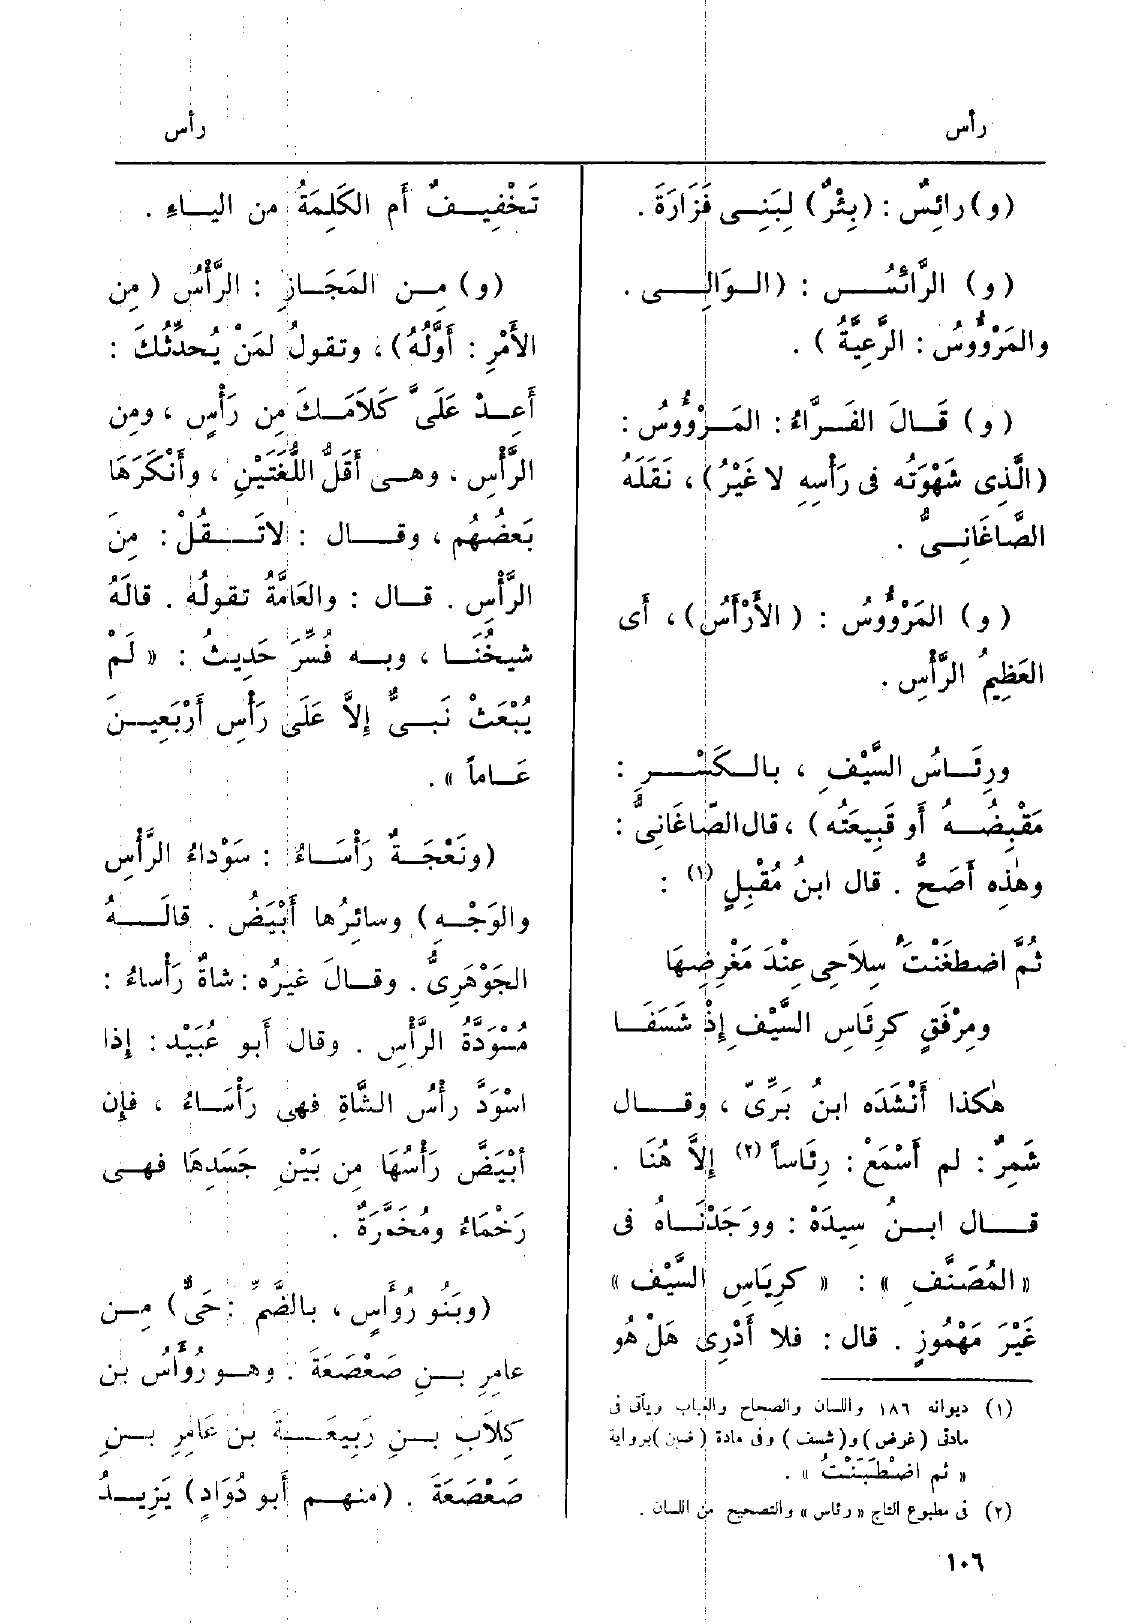 رأس
رأس
(و) رائِسٌ : (بِئْرٌ) لِبَنِى فَزَارَةَ .
(و) الرَّائسُ : (الوَالِى .
والمَرْؤُوسُ : الرَّعِيَّةُ ) .
(و) قَالَ الفَرَّاءُ : المَرْؤُوسُ :
(الَّذِى شَهْوَتُه فى رَأْسِهِ لا غَيْرُ) ، نَقَلَهُ
الصَّاغَانِىُّ .
(و) المَرْؤُوسُ : (الأَرْأَسُ) ، أَى
العَظِيمُ الرَّأْسِ .
ورِئَاسُ السَّيْفِ ، بالكَسْرِ :
مَقْبِضُهُ أَو قَبِيعَتُه) ، قال الصّاغَانِىُّ :
وهٰذِه أَصَحُّ . قال ابنُ مُقْبِلٍ (١) :
ثُمَّ اضطَغَنْتُ سِلَاحِى عِنْدَ مَغْرِضِهَا
ومِرْفَقٍ كرِئَاسِ السَّيْفِ إِذْ شَسَفَا
هٰكذا أَنْشَدَه ابنُ بَرِّىّ ، وقال
شَمِرٌ : لم أَسْمَعْ : رِئَاساً (٢) إِلاَّ هُنَا .
قال ابنُ سِيدَهْ : ووَجَدْنَاهُ فى
« المُصَنَّفِ » : « كرِيَاسِ السَّيْف »
غَيْرَ مَهْمُوزٍ . قال : فلا أَدْرِى هَلْ هُو
(١) ديوانه ١٨٦ واللسان والصحاح والعباب ويأتى فى
مادتى (غرض) و(شسف) وفى مادة (ضبن) برواية
« ثم اضْطَبَنْتُ » .
(٢) فى مطبوع التاج « رئاس » والتصحيح من اللسان .
تَخْفِيفٌ أَم الكَلِمَةُ من الياءِ .
(و) مِن المَجَازِ : الرَّأْسُ (مِن
الأَمْرِ : أَوَّلُهُ) ، وتقولُ لمَنْ يُحدِّثُكَ :
أَعِدْ عَلَىَّ كَلاَمَكَ مِن رَأْسٍ ، ومِن
الرَّأْسِ ، وهى أَقَلُّ اللُّغَتَيْنِ ، وأَنْكَرَهَا
بَعضُهُم ، وقال : لاتَقُلْ : مِنَ
الرَّأْسِ . قال : والعَامَّةُ تقولُه . قالَهُ
شيخُنَا ، وبه فُسِّرَ حَدِيثُ : « لَمْ
يُبْعَثْ نَبِىٌّ إِلاَّ عَلَى رَأْسِ أَرْبَعِينَ
عَاماً » .
(ونَعْجَةٌ رَأْسَاءُ : سَوْداءُ الرَّأْسِ
والوَجْهِ) وسائِرُها أَبْيَضُ . قالَهُ
الجَوْهَرِىُّ . وقالَ غيرُه : شاةٌ رَأْساءُ :
مُسْوَدَّةُ الرَّأْسِ . وقال أَبو عُبَيْد : إِذا
اسْوَدَّ رأْسُ الشَّاةِ فهى رَأْسَاءُ ، فإِن
أبْيَضَّ رَأْسُهَا مِن بَيْنِ جَسَدِهَا فهى
رَخْمَاءُ ومُخَمَّرَةٌ .
(وبَنُو رُوَأسٍ ، بالضَّمِّ : حَىٌّ) مِن
عامِرِ بنِ صَعْصَعَةَ . وهو رُؤَاسُ بن
كِلاَبِ بنِ رَبِيعَةَ بن عَامِرِ بنِ
صَعْصَعَةَ . (منهم أَبو دُوَادٍ) يَزِيدُ
١٠٦